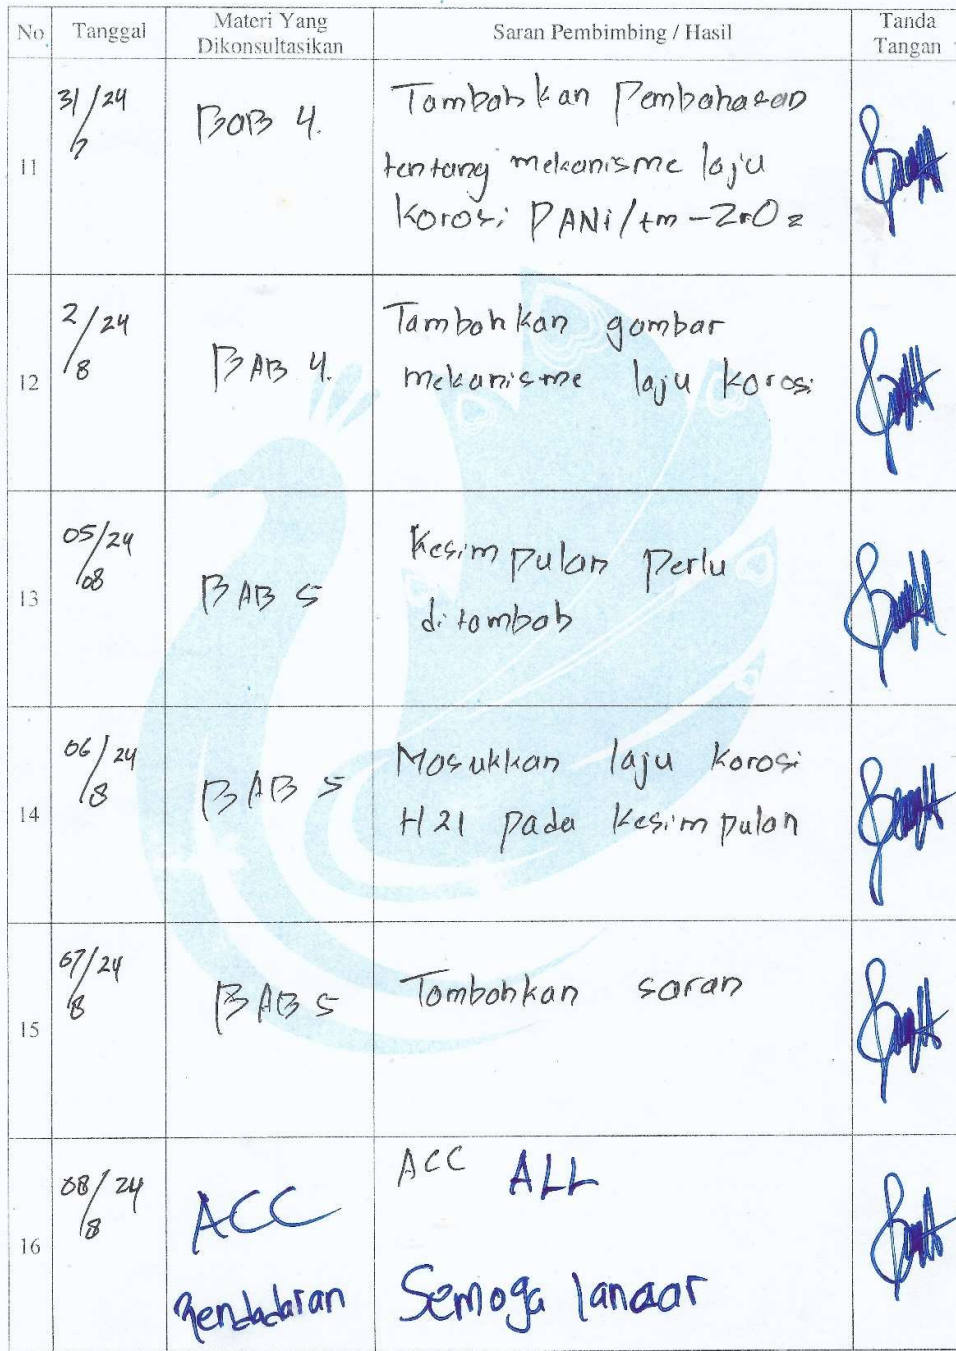 No Tanggal Materi Yang Dikonsultasikan Saran Pembimbing / Hasil Tanda Tangan
11 31/24 7 BAB 4. Tambahkan Pembahasan
tentang mekanisme laju
korosi PANi/tm-ZrO2
12 2/24 8 BAB 4. Tambahkan gambar
mekanisme laju korosi
13 05/24 08 BAB 5 Kesimpulan perlu
ditambah
14 06/24 8 BAB 5 Masukkan laju korosi
H21 pada kesimpulan
15 07/24 8 BAB 5 Tambahkan saran
16 08/24 8 ACC ACC ALL
Pendadaran Semoga lancar